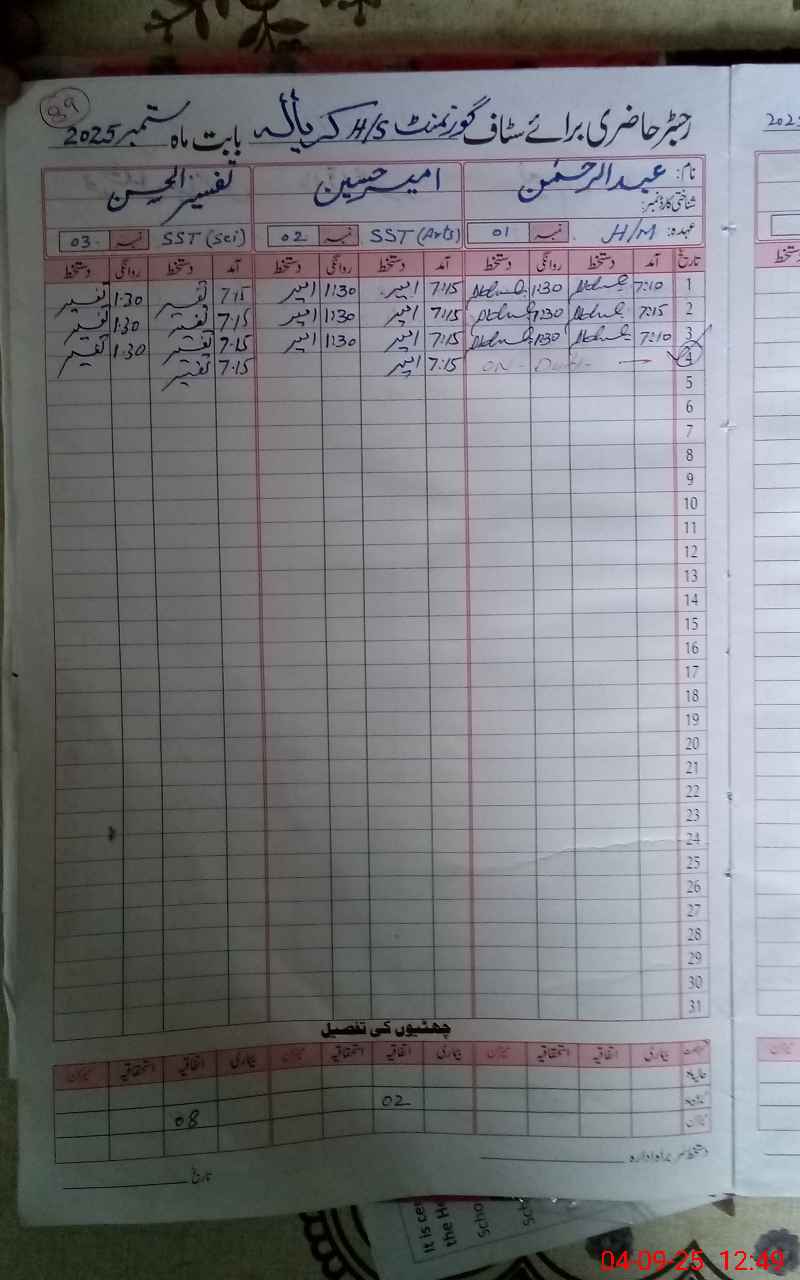 89
رجسٹر حاضری برائے سٹاف گورنمنٹ H/S کریالہ بابت ماہ ستمبر 2025
نام: عبدالرحمٰن امیر حسین تفسیر الحسن
شناختی کارڈ نمبر:
عہدہ: H/M نمبر 01 SST (Arts) نمبر 02 SST (Sci) نمبر 03
تاریخ آمد دستخط روانگی دستخط آمد دستخط روانگی دستخط آمد دستخط روانگی دستخط
1 7:10 1:30 7:15 امیر 1:30 امیر 7:15 تفسیر 1:30 تفسیر
2 7:15 1:30 7:15 امیر 1:30 امیر 7:15 تفسیر 1:30 تفسیر
3 7:10 1:30 7:15 امیر 1:30 امیر 7:15 تفسیر 1:30 تفسیر
4 ON - Duty 7:15 امیر 7:15 تفسیر
5
6
7
8
9
10
11
12
13
14
15
16
17
18
19
20
21
22
23
24
25
26
27
28
29
30
31
چھٹیوں کی تفصیل
بیماری اتفاقیہ استحقاقیہ میزان بیماری اتفاقیہ استحقاقیہ میزان بیماری اتفاقیہ استحقاقیہ میزان
02
میزان 08
دستخط سربراہ ادارہ
تاریخ
It is cer
the He
Scho
Sch
04-09-25 12:49